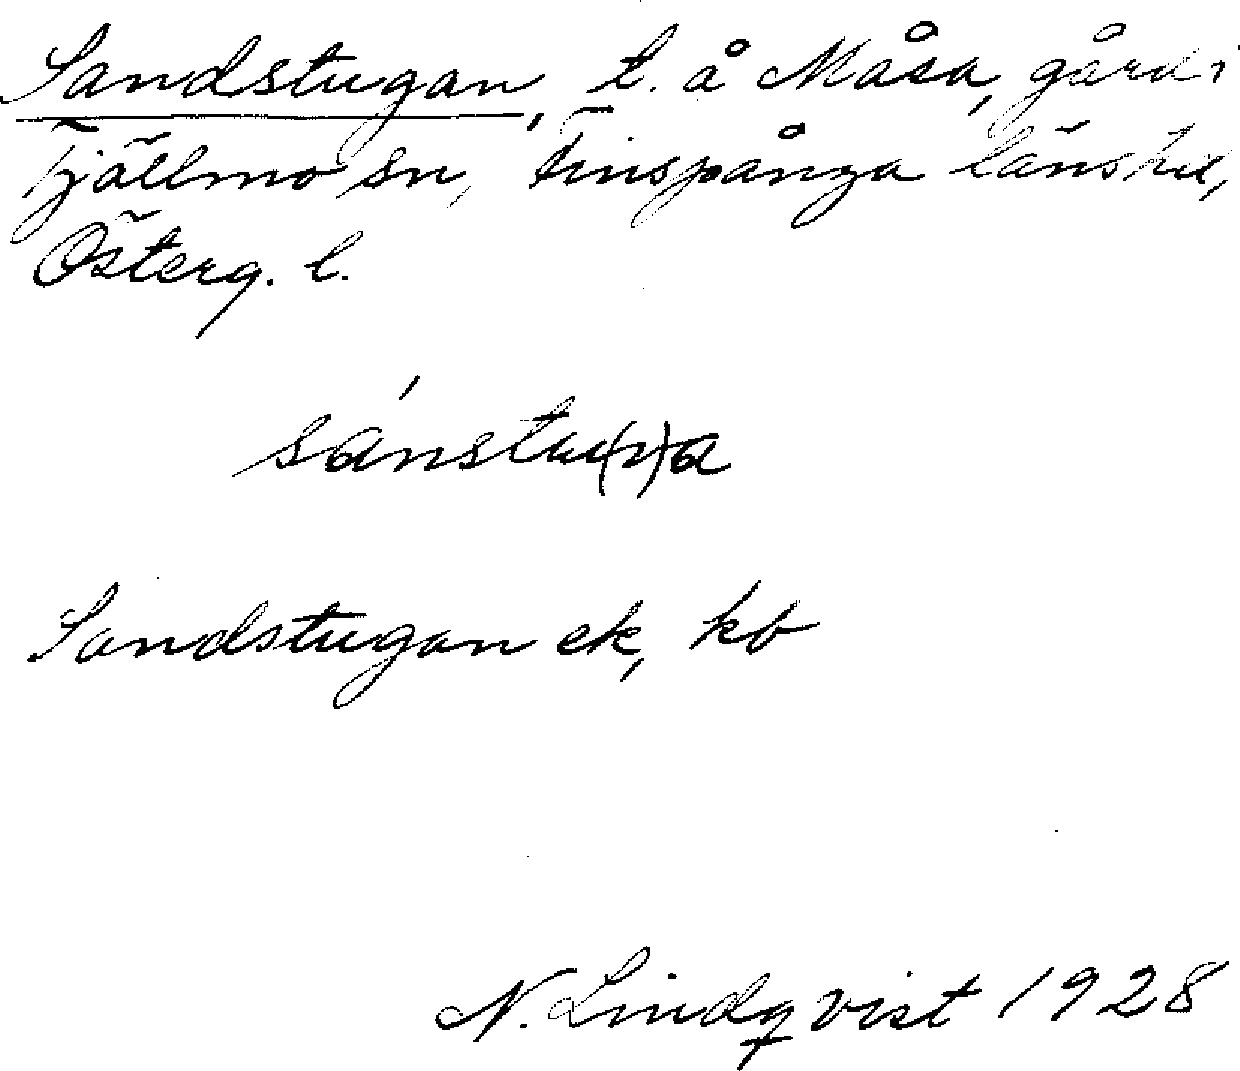 Sandstugan, t. å Måsa, gård i
Tjällmo sn, Finspånga länshd,
Österg. l.
sánstu(n)a
Sandstugan ek, kb
N. Lindqvist 1928